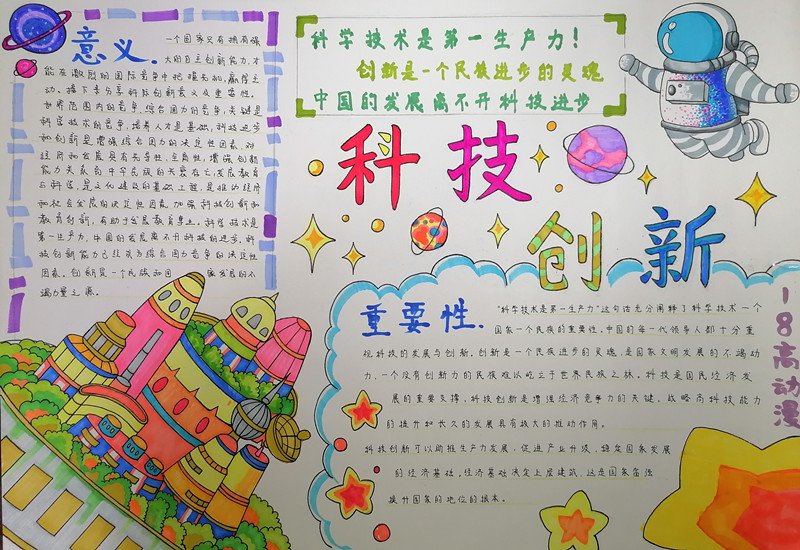 科学技术是第一生产力!
创新是一个民族进步的灵魂
中国的发展离不开科技进步
科技
创新
意义.
一个国家只有拥有强
大的自主创新能力,才
能在激烈的国际竞争中把握先机,赢得主
动。接下来分享科际创新意义及重要性。
世界范围内的竞争,综合国力的竞争,关键是
科学技术的竞争,培养人才是基础,科技进步
和创新是增强综合国力的决定性因素,对
经济和发展具有先导性,全局性,增强创新
能力关系到中华民族的兴衰存亡,发展教育
与科学,是文化建设的基础工程,是推动经济
和社会发展的决定性因素,加强科技创新和
教育创新,有助于发展教育事业。科学技术是
第一生产力,中国的发展离不开科技的进步,科
技创新能力已经成为综合国力竞争的决定性
因素。创新是一个民族和国 家发展的不
竭力量之源。
重要性.
“科学技术是第一生产力”这句话充分阐释了科学技术一个
国家一个民族的重要性。中国的每一代领导人都十分重
视科技的发展与创新。创新是一个民族进步的灵魂,是国家文明发展的不竭动
力,一个没有创新力的民族难以屹立于世界民族之林。科技是国民经济发
展的重要支撑,科技创新是增强经济竞争力的关键,战略高科技能力
的提升和长久的发展具有极大的推动作用。
科技创新可以助推生产力发展,促进产业升级,稳定国家发展
的经济基础。经济基础决定上层建筑,这是国家
提升国家的地位的根本。
18高动漫